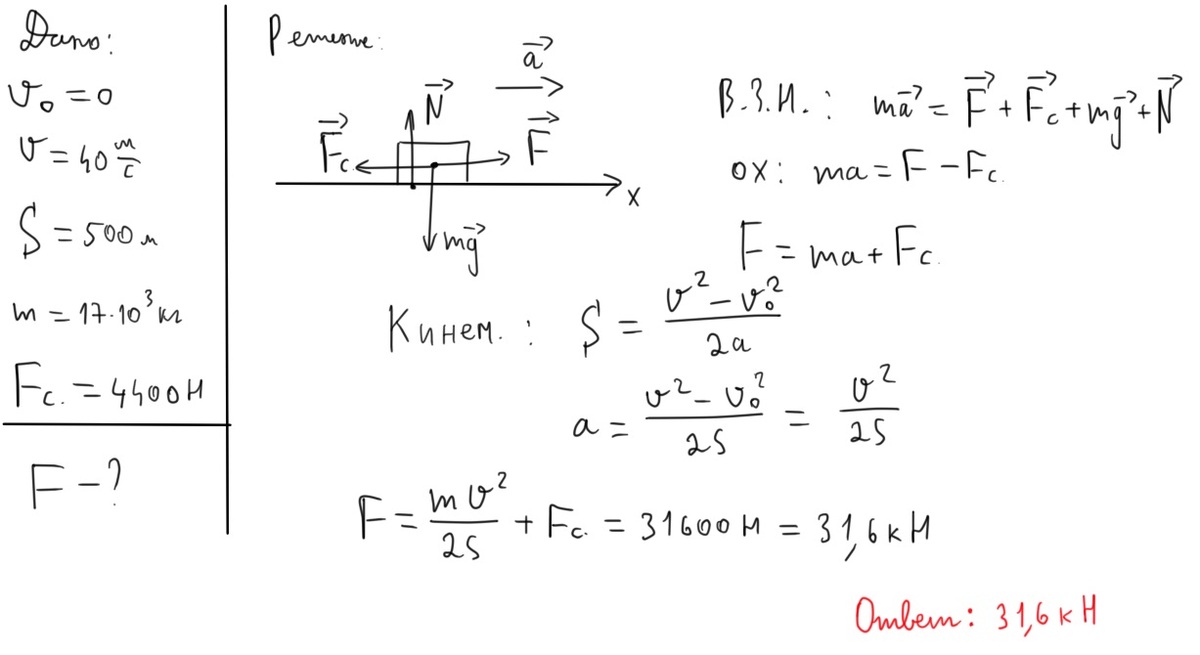 Дано:
v₀ = 0
v = 40 м/с
S = 500 м
m = 17·10³ кг
Fс. = 4400 Н
F – ?
Решение:
a⃗
N⃗
F⃗с.
F⃗
x
mg⃗
В.З.Н.: ma⃗ = F⃗ + F⃗с + mg⃗ + N⃗
OX: ma = F – Fс.
F = ma + Fс.
Кинем.: S = (v² – v₀²)/(2a)
a = (v² – v₀²)/(2S) = v²/(2S)
F = mv²/(2S) + Fс. = 31600 Н = 31,6 кН
Ответ: 31,6 кН